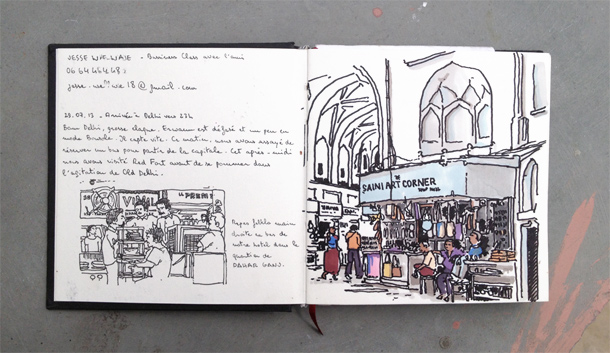 JESSE WAE-WASE - Business Class avec l'ami
06 64 46 4 48
jesse.
18@gmail.com
28.07.13 - Arrivée à Delhi vers 23h
Bam Delhi, grosse claque. Erwann est déjeté et un peu en
mode Il capte vite. Ce matin, nous avons essayé de
réserver un bus pour partir de la capitale. Cet après-midi
nous avons visité Red Fort avant de se promener dans
l'agitation de Old Delhi.
VIMAL
"PREMI
Repas
en bas de
notre hôtel dans le
quartier de
DARYA GANJ.
THE
SAINI ART CORNER
SHOP